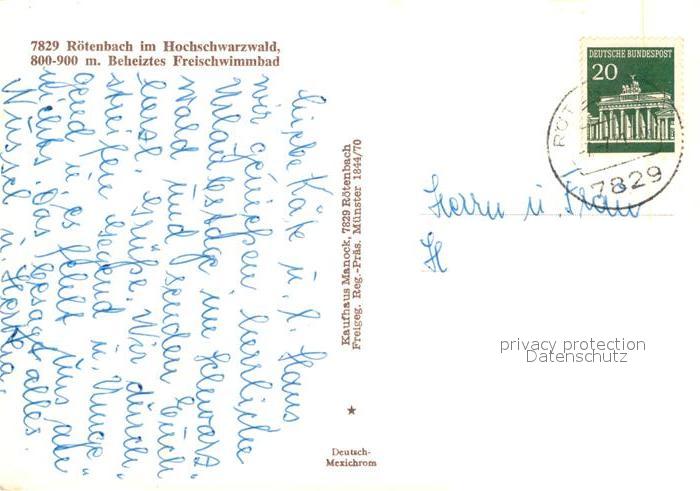 7829 Rötenbach im Hochschwarzwald,
800-900 m. Beheiztes Freischwimmbad
Liebe Käte u. l. Hans
wir genießen herrliche
Urlaubstage im Schwarz
wald und senden Euch
Grüße. Wir durch
streifen
u.
es fehlt uns
Das besagt alles.
u.
Kaufhaus Manock, 7829 Rötenbach
Freigeg. Reg.-Präs. Münster 1844/70
Deutsch-
Mexichrom
DEUTSCHE BUNDESPOST
20
RÖT
7829
Herrn u. Frau
H
privacy protection
Datenschutz